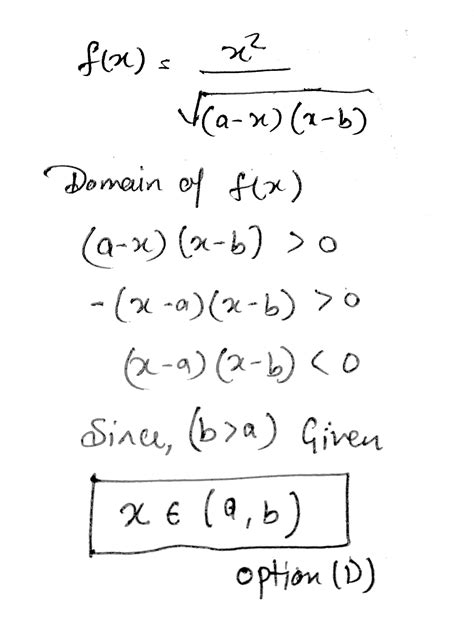 f(x) = x² / √(a-x)(x-b)
Domain of f(x)
(a-x)(x-b) > 0
-(x-a)(x-b) > 0
(x-a)(x-b) < 0
Since, (b>a) Given
x ∈ (a,b)
option (D)